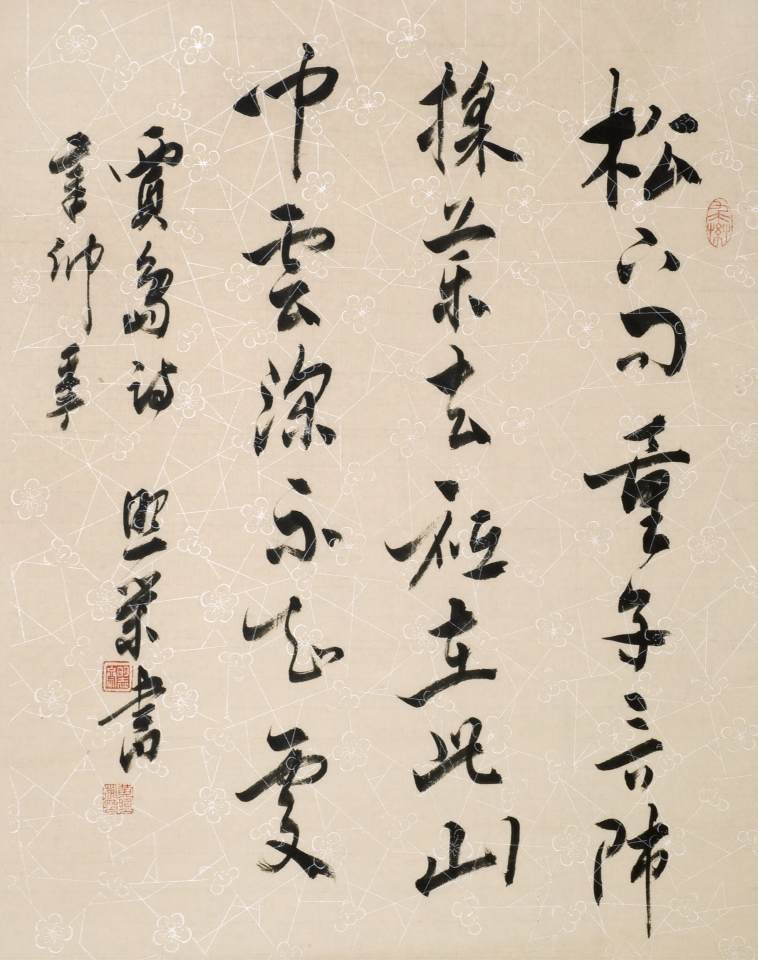 松下問童子言師
採藥去祗在此山
中雲深不知處
賈島詩 照書
辛卯